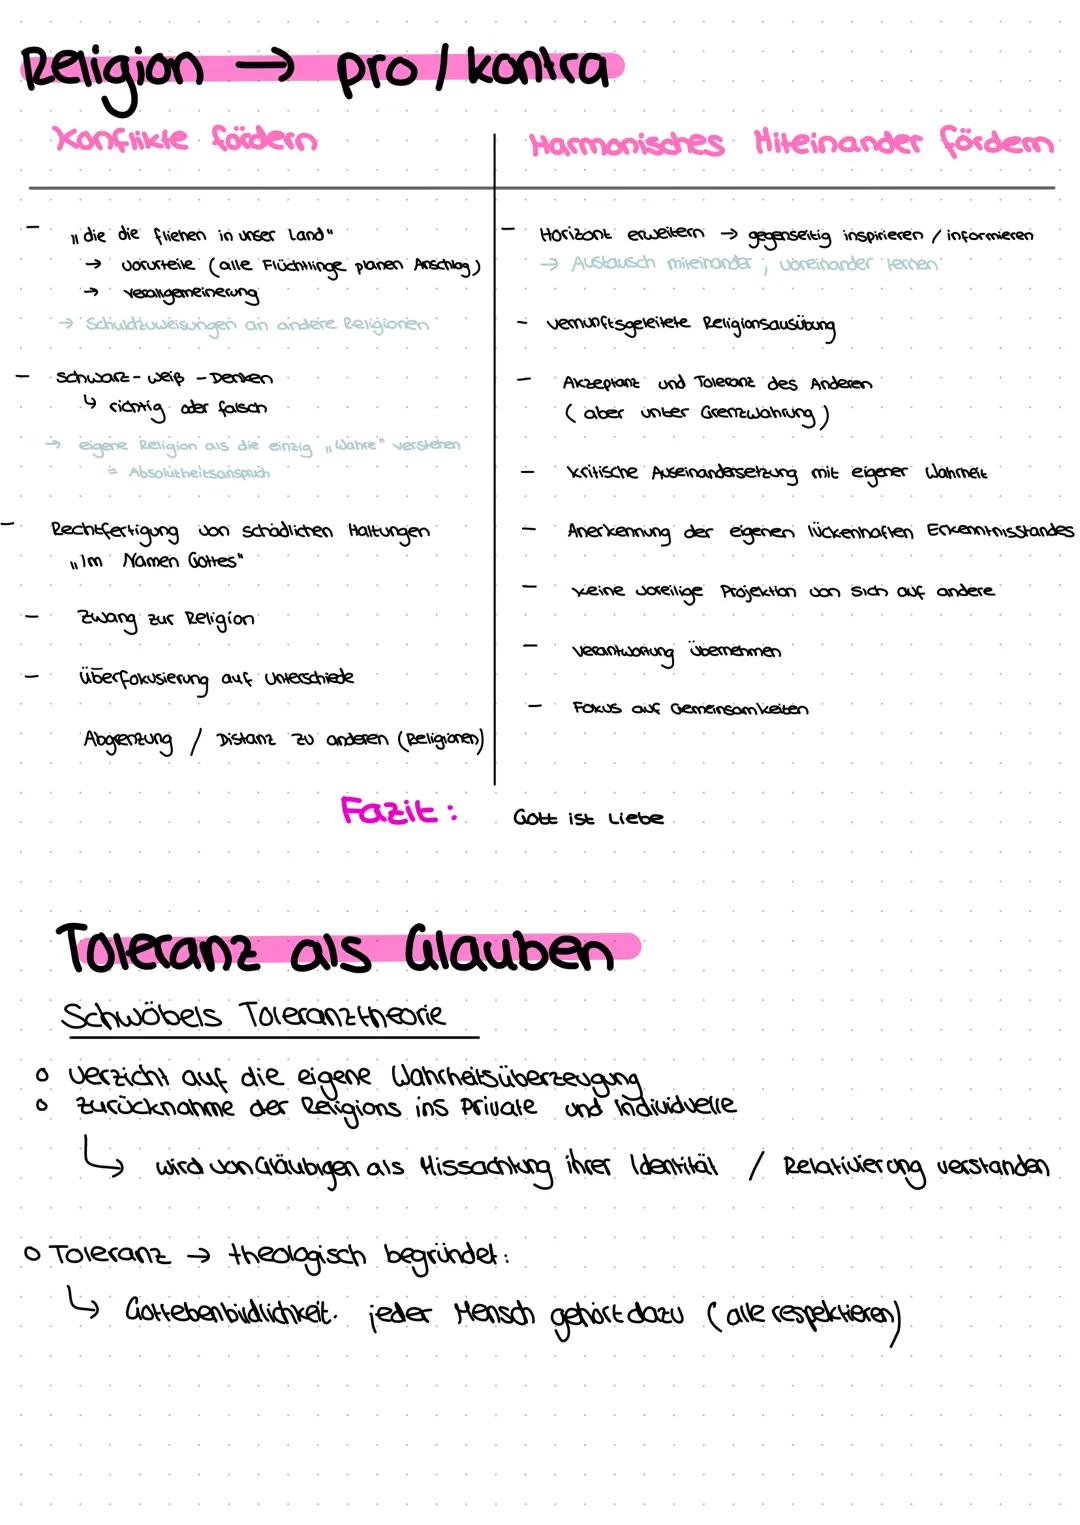 Religion → pro / kontra
Konflikte fördern
- „die die fliehen in unser Land"
→ Vorurteile (alle Flüchtlinge planen Anschlag)
→ Verallgemeinerung
→ Schuldzuweisungen an andere Religionen
- schwarz-weiß-Denken
↳ richtig oder falsch
→ eigene Religion als die einzig „Wahre" verstehen
= Absolutheitsanspruch
- Rechtfertigung von schädlichen Haltungen
„Im Namen Gottes"
- Zwang zur Religion
- Überfokusierung auf Unterschiede
Abgrenzung / Distanz zu anderen (Religionen)
Harmonisches Miteinander fördern
- Horizont erweitern → gegenseitig inspirieren / informieren
→ Austausch miteinander, voneinander lernen
- vernunftsgeleitete Religionsausübung
- Akzeptanz und Toleranz des Anderen
(aber unter Grenzwahrung)
- kritische Auseinandersetzung mit eigener Wahrheit
- Anerkennung der eigenen lückenhaften Erkenntnisstandes
- keine voreilige Projektion von sich auf andere
- Verantwortung übernehmen
- Fokus auf Gemeinsamkeiten
Fazit: Gott ist Liebe
Toleranz als Glauben
Schwöbels Toleranztheorie
o Verzicht auf die eigene Wahrheitsüberzeugung
o Zurücknahme der Religions ins Private und Individuelle
↳ wird von Gläubigen als Missachtung ihrer Identität / Relativierung verstanden
o Toleranz → theologisch begründet:
↳ Gottebenbildlichkeit. jeder Mensch gehört dazu (alle respektieren)